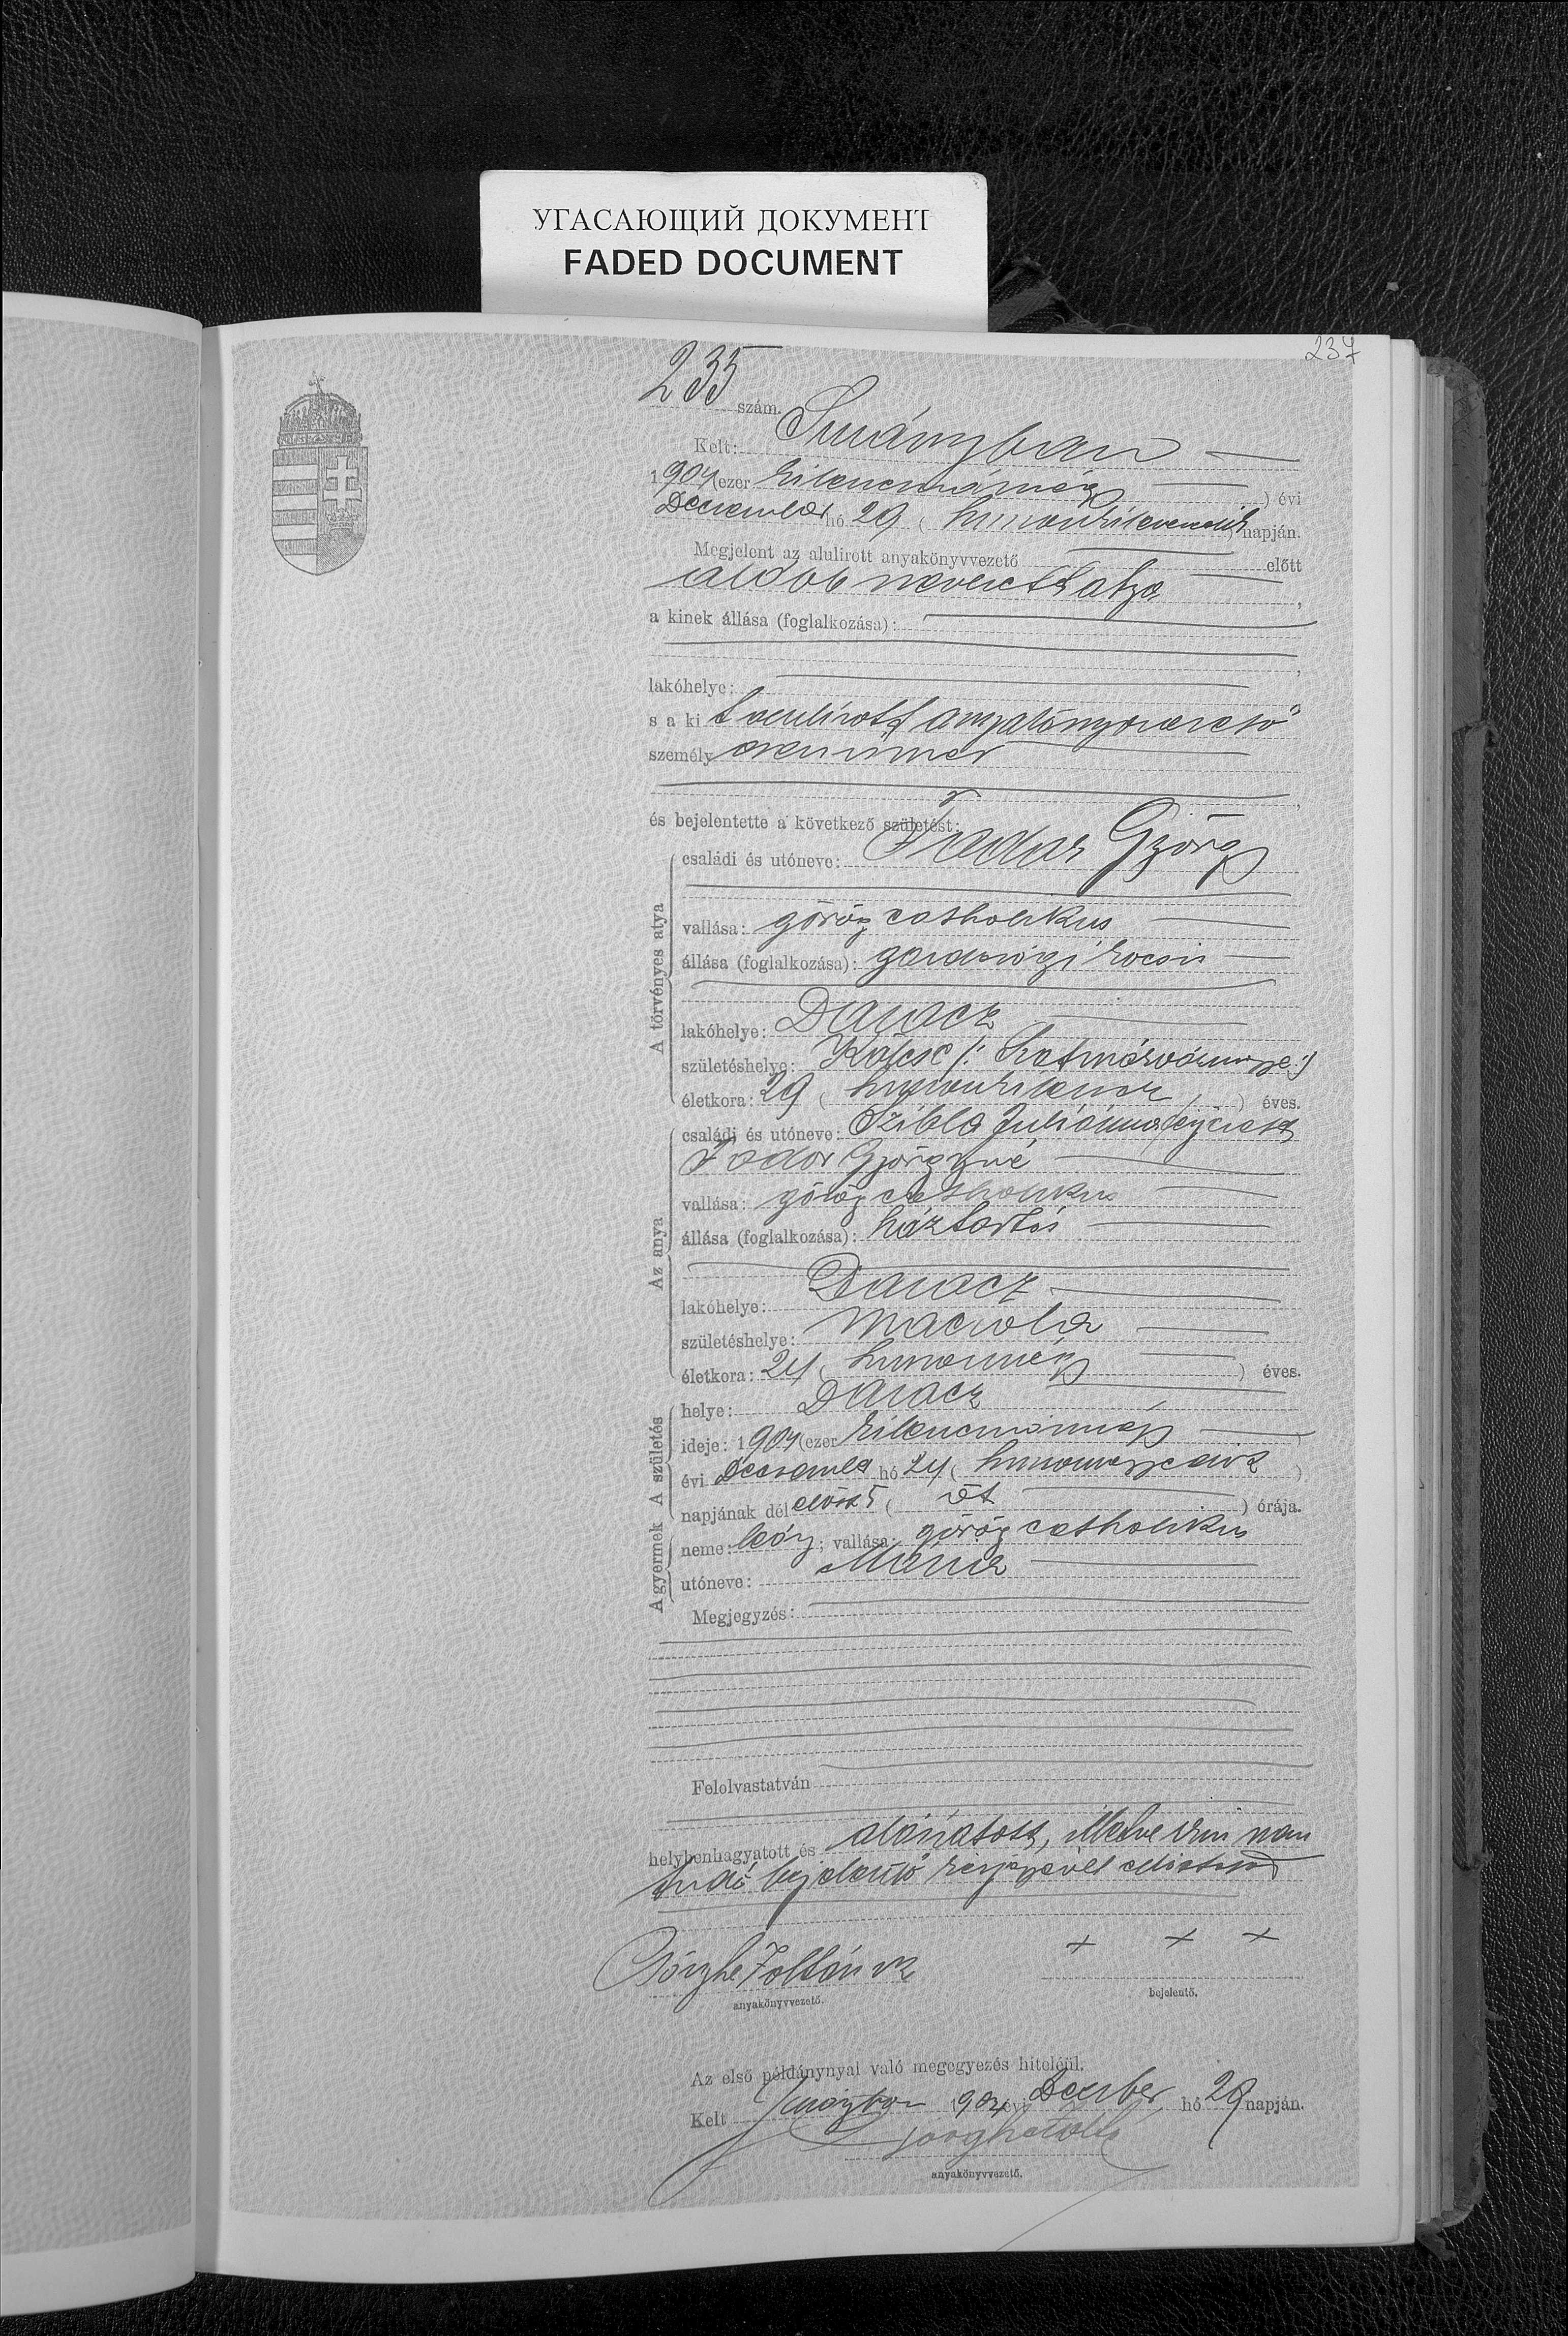 УГАСАЮЩИЙ ДОКУМЕНТ
FADED DOCUMENT
237
235 szám.
Kelt:
1904 (ezer kilenczszáznégy) évi
December hó 29 (huszonkilenczedik) napján.
Megjelent az alulirott anyakönyvvezető előtt
alább nevezett atya,
a kinek állása (foglalkozása):
lakóhelye:
s a ki alulirott anyakönyvvezető
személyesen ismer
és bejelentette a következő születést:
A törvényes atya
családi és utóneve: Fodor György
vallása: görög catholikus
állása (foglalkozása): gazdasági kocsis
lakóhelye: Daracz
születéshelye: Kölcse (: Szatmárvármegye:)
életkora: 29 (huszonkilencz) éves.
Az anya
családi és utóneve: Juliánna férjezett
Fodor Györgyné
vallása: görög catholikus
állása (foglalkozása): háztartás
lakóhelye: Daracz
születéshelye: Macsola
életkora: 24 (huszonnégy) éves.
A gyermek A születés
helye: Daracz
ideje: 1904 (ezer kilenczszáznégy)
évi December hó 24 (huszonnegyedik)
napjának dél előtt 5 (öt) órája.
neme: leány; vallása: görög catholikus
utóneve: Mária
Megjegyzés:
Felolvastatván
helybenhagyatott és aláíratott, illetve írni nem
tudó bejelentő kézjegyével ellátva
Zoltán + + +
anyakönyvvezető. bejelentő.
Az első példánynyal való megegyezés hiteléül.
Kelt 1904 évi December hó 29 napján.
anyakönyvvezető.